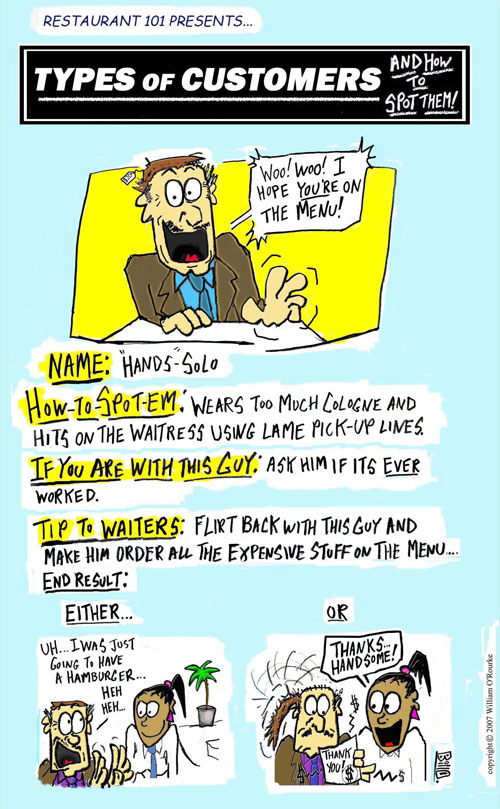 RESTAURANT 101 PRESENTS...
TYPES OF CUSTOMERS
AND HOW
TO
SPOT THEM!
WOO! WOO! I
HOPE YOU'RE ON
THE MENU!
NAME: "HANDS"-SOLO
HOW-TO-SPOT-EM: WEARS TOO MUCH COLOGNE AND
HITS ON THE WAITRESS USING LAME PICK-UP LINES.
IF YOU ARE WITH THIS GUY: ASK HIM IF ITS EVER
WORKED.
TIP TO WAITERS: FLIRT BACK WITH THIS GUY AND
MAKE HIM ORDER ALL THE EXPENSIVE STUFF ON THE MENU....
END RESULT:
EITHER...
OR
UH... I WAS JUST
GOING TO HAVE
A HAMBURGER...
HEH
HEH...
THANKS...
HANDSOME!
THANK
YOU!
$
$
copyright© 2007 William O'Rourke